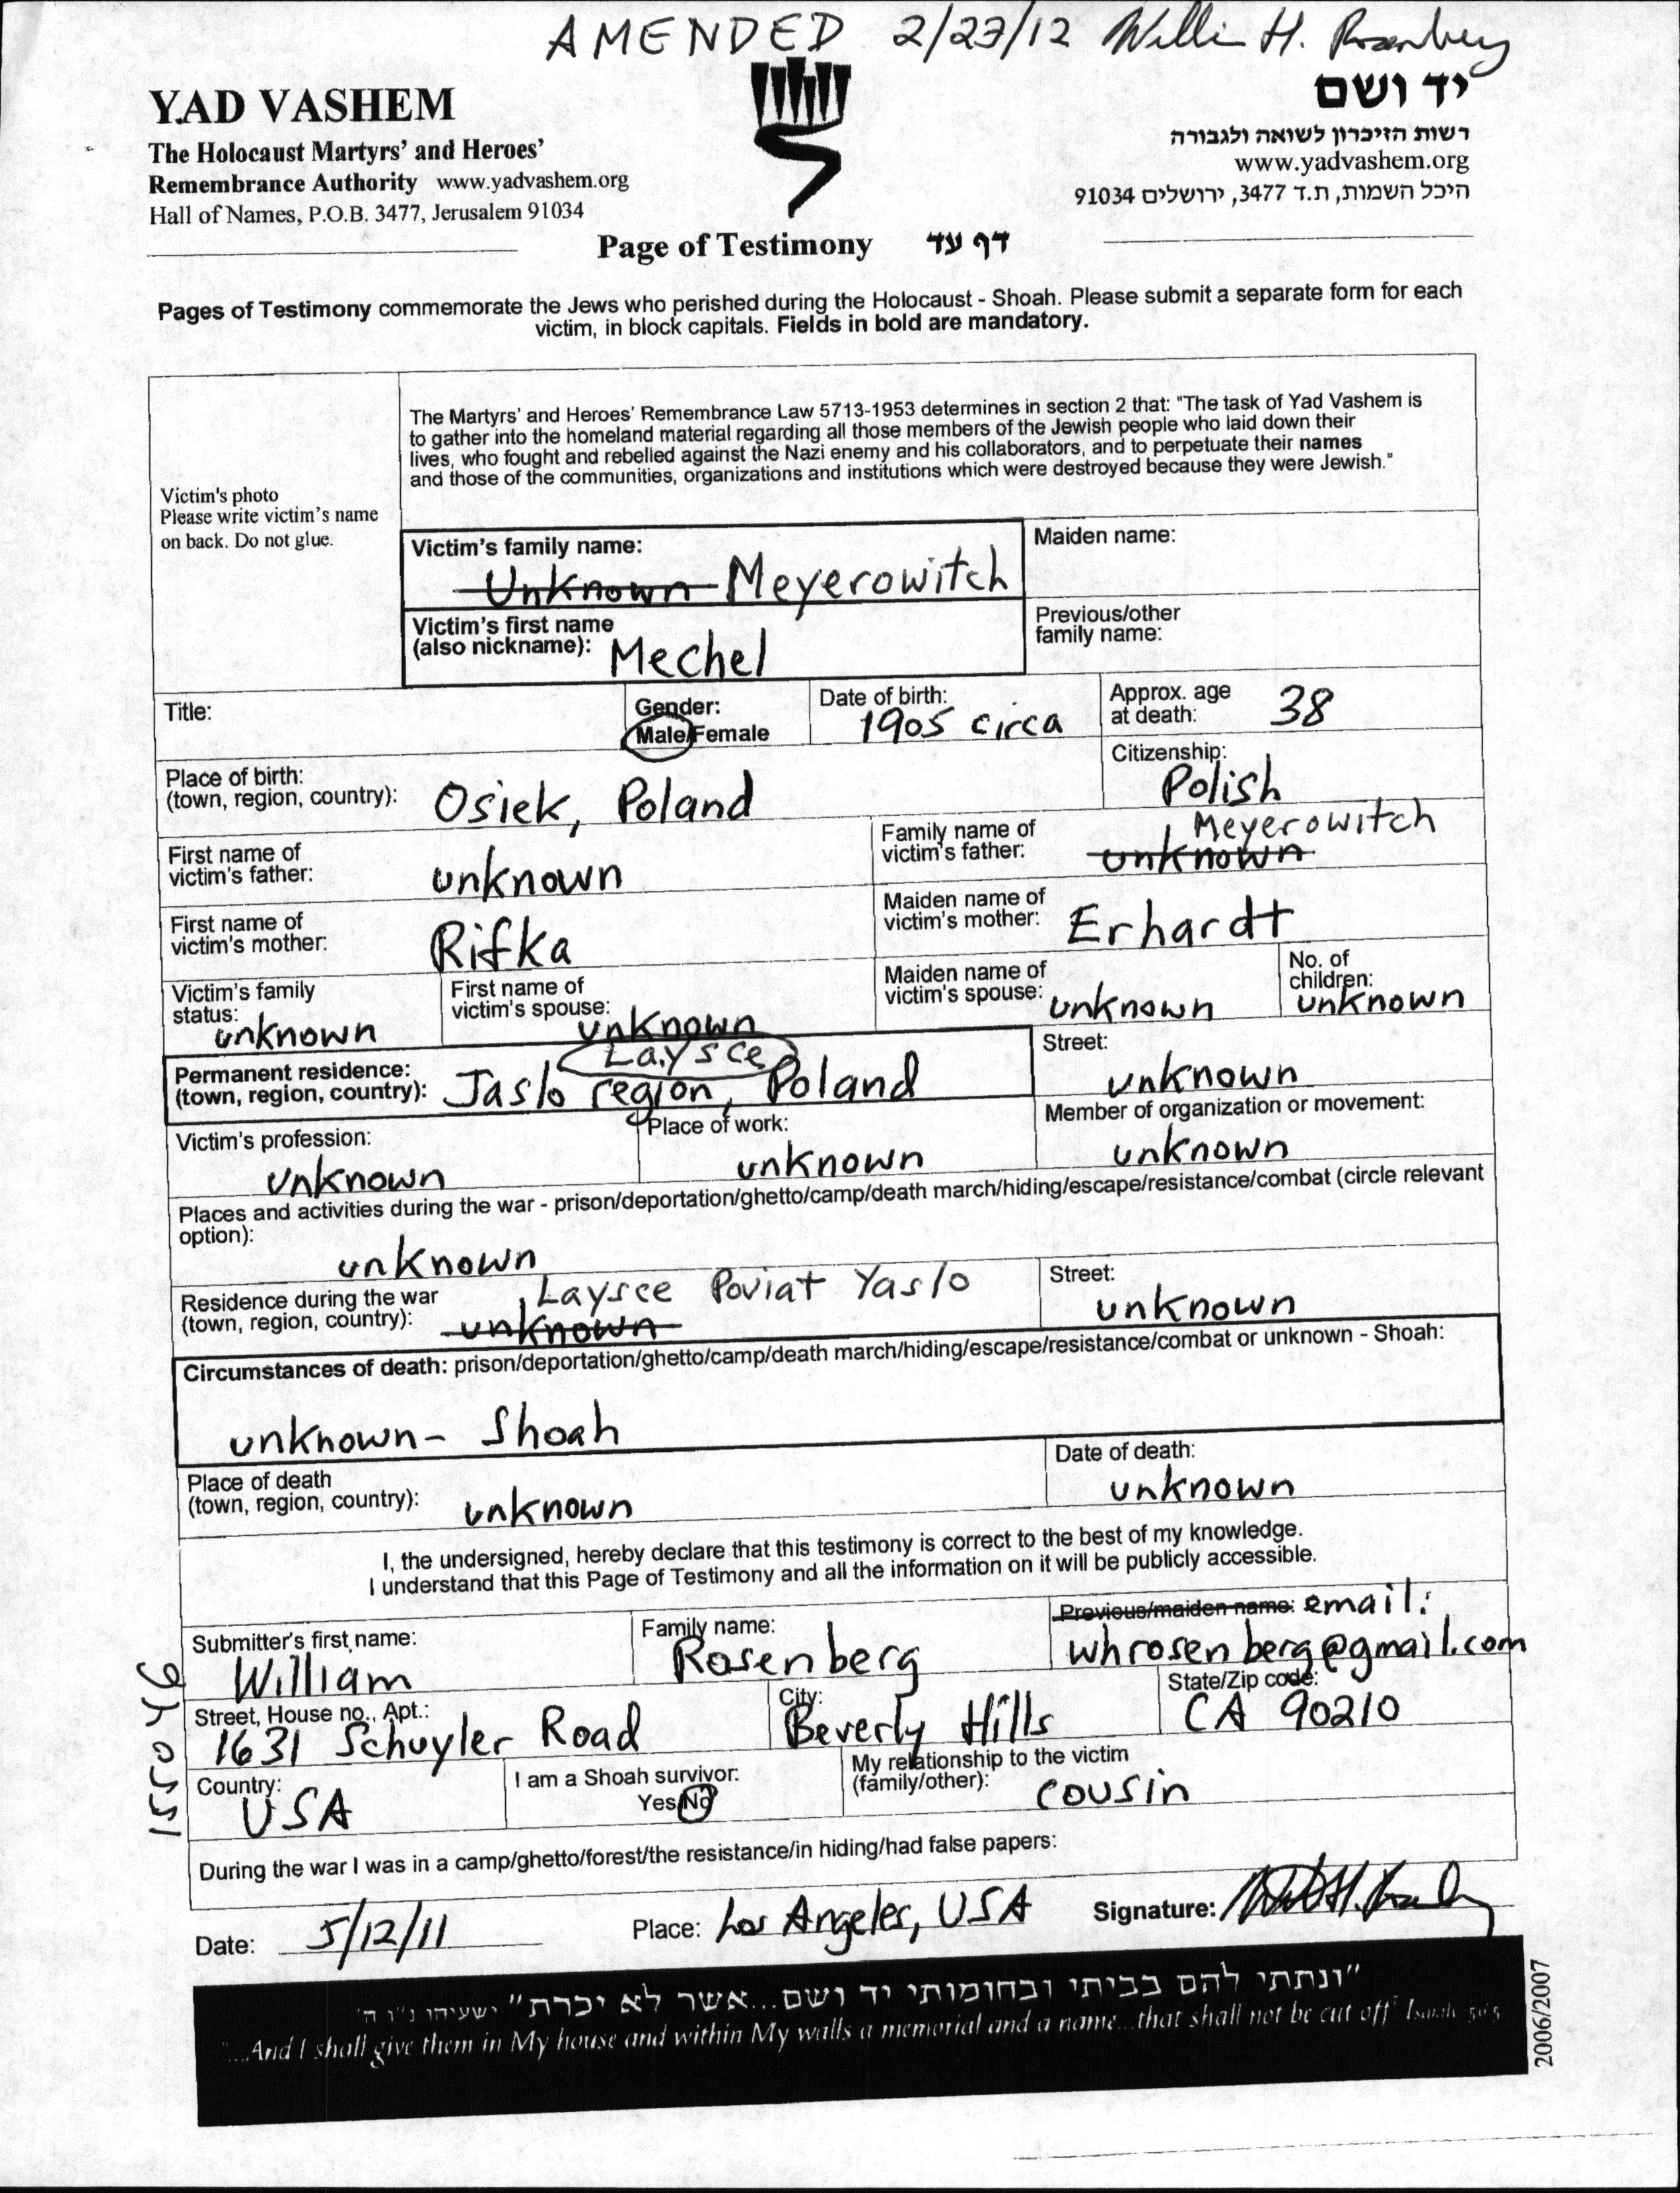 AMENDED 2/23/12 Willi H. Rosenberg
YAD VASHEM
The Holocaust Martyrs' and Heroes'
Remembrance Authority www.yadvashem.org
Hall of Names, P.O.B. 3477, Jerusalem 91034
יד ושם
רשות הזיכרון לשואה ולגבורה
www.yadvashem.org
היכל השמות, ת.ד 3477, ירושלים 91034
Page of Testimony דף עד
Pages of Testimony commemorate the Jews who perished during the Holocaust - Shoah. Please submit a separate form for each
victim, in block capitals. Fields in bold are mandatory.
Victim's photo
Please write victim's name
on back. Do not glue.
The Martyrs' and Heroes' Remembrance Law 5713-1953 determines in section 2 that: "The task of Yad Vashem is
to gather into the homeland material regarding all those members of the Jewish people who laid down their
lives, who fought and rebelled against the Nazi enemy and his collaborators, and to perpetuate their names
and those of the communities, organizations and institutions which were destroyed because they were Jewish."
Victim's family name:
Unknown Meyerowitch
Maiden name:
Victim's first name
(also nickname): Mechel
Previous/other
family name:
Title:
Gender:
Male/Female
Date of birth:
1905 circa
Approx. age
at death: 38
Place of birth:
(town, region, country): Osiek, Poland
Citizenship:
Polish
First name of
victim's father: unknown
Family name of
victim's father: unknown Meyerowitch
First name of
victim's mother: Rifka
Maiden name of
victim's mother: Erhardt
Victim's family
status: unknown
First name of
victim's spouse: unknown
Maiden name of
victim's spouse: unknown
No. of
children:
unknown
Permanent residence:
(town, region, country): Jaslo region, Laysce Poland
Street:
unknown
Victim's profession:
unknown
Place of work:
unknown
Member of organization or movement:
unknown
Places and activities during the war - prison/deportation/ghetto/camp/death march/hiding/escape/resistance/combat (circle relevant
option):
unknown
Residence during the war
(town, region, country): unknown Laysce Poviat Yaslo
Street:
unknown
Circumstances of death: prison/deportation/ghetto/camp/death march/hiding/escape/resistance/combat or unknown - Shoah:
unknown - Shoah
Place of death
(town, region, country): unknown
Date of death:
unknown
I, the undersigned, hereby declare that this testimony is correct to the best of my knowledge.
I understand that this Page of Testimony and all the information on it will be publicly accessible.
Submitter's first name:
William
Family name:
Rosenberg
Previous/maiden name: email:
whrosenberg@gmail.com
Street, House no., Apt.:
1631 Schuyler Road
City:
Beverly Hills
State/Zip code:
CA 90210
Country:
USA
I am a Shoah survivor:
Yes/No
My relationship to the victim
(family/other): cousin
During the war I was in a camp/ghetto/forest/the resistance/in hiding/had false papers:
Date: 5/12/11
Place: Los Angeles, USA
Signature:
"ונתתי להם בביתי ובחומותי יד ושם...אשר לא יכרת" ישעיהו נ"ו ה'
"...And I shall give them in My house and within My walls a memorial and a name...that shall not be cut off" Isaiah 56:5
2006/2007